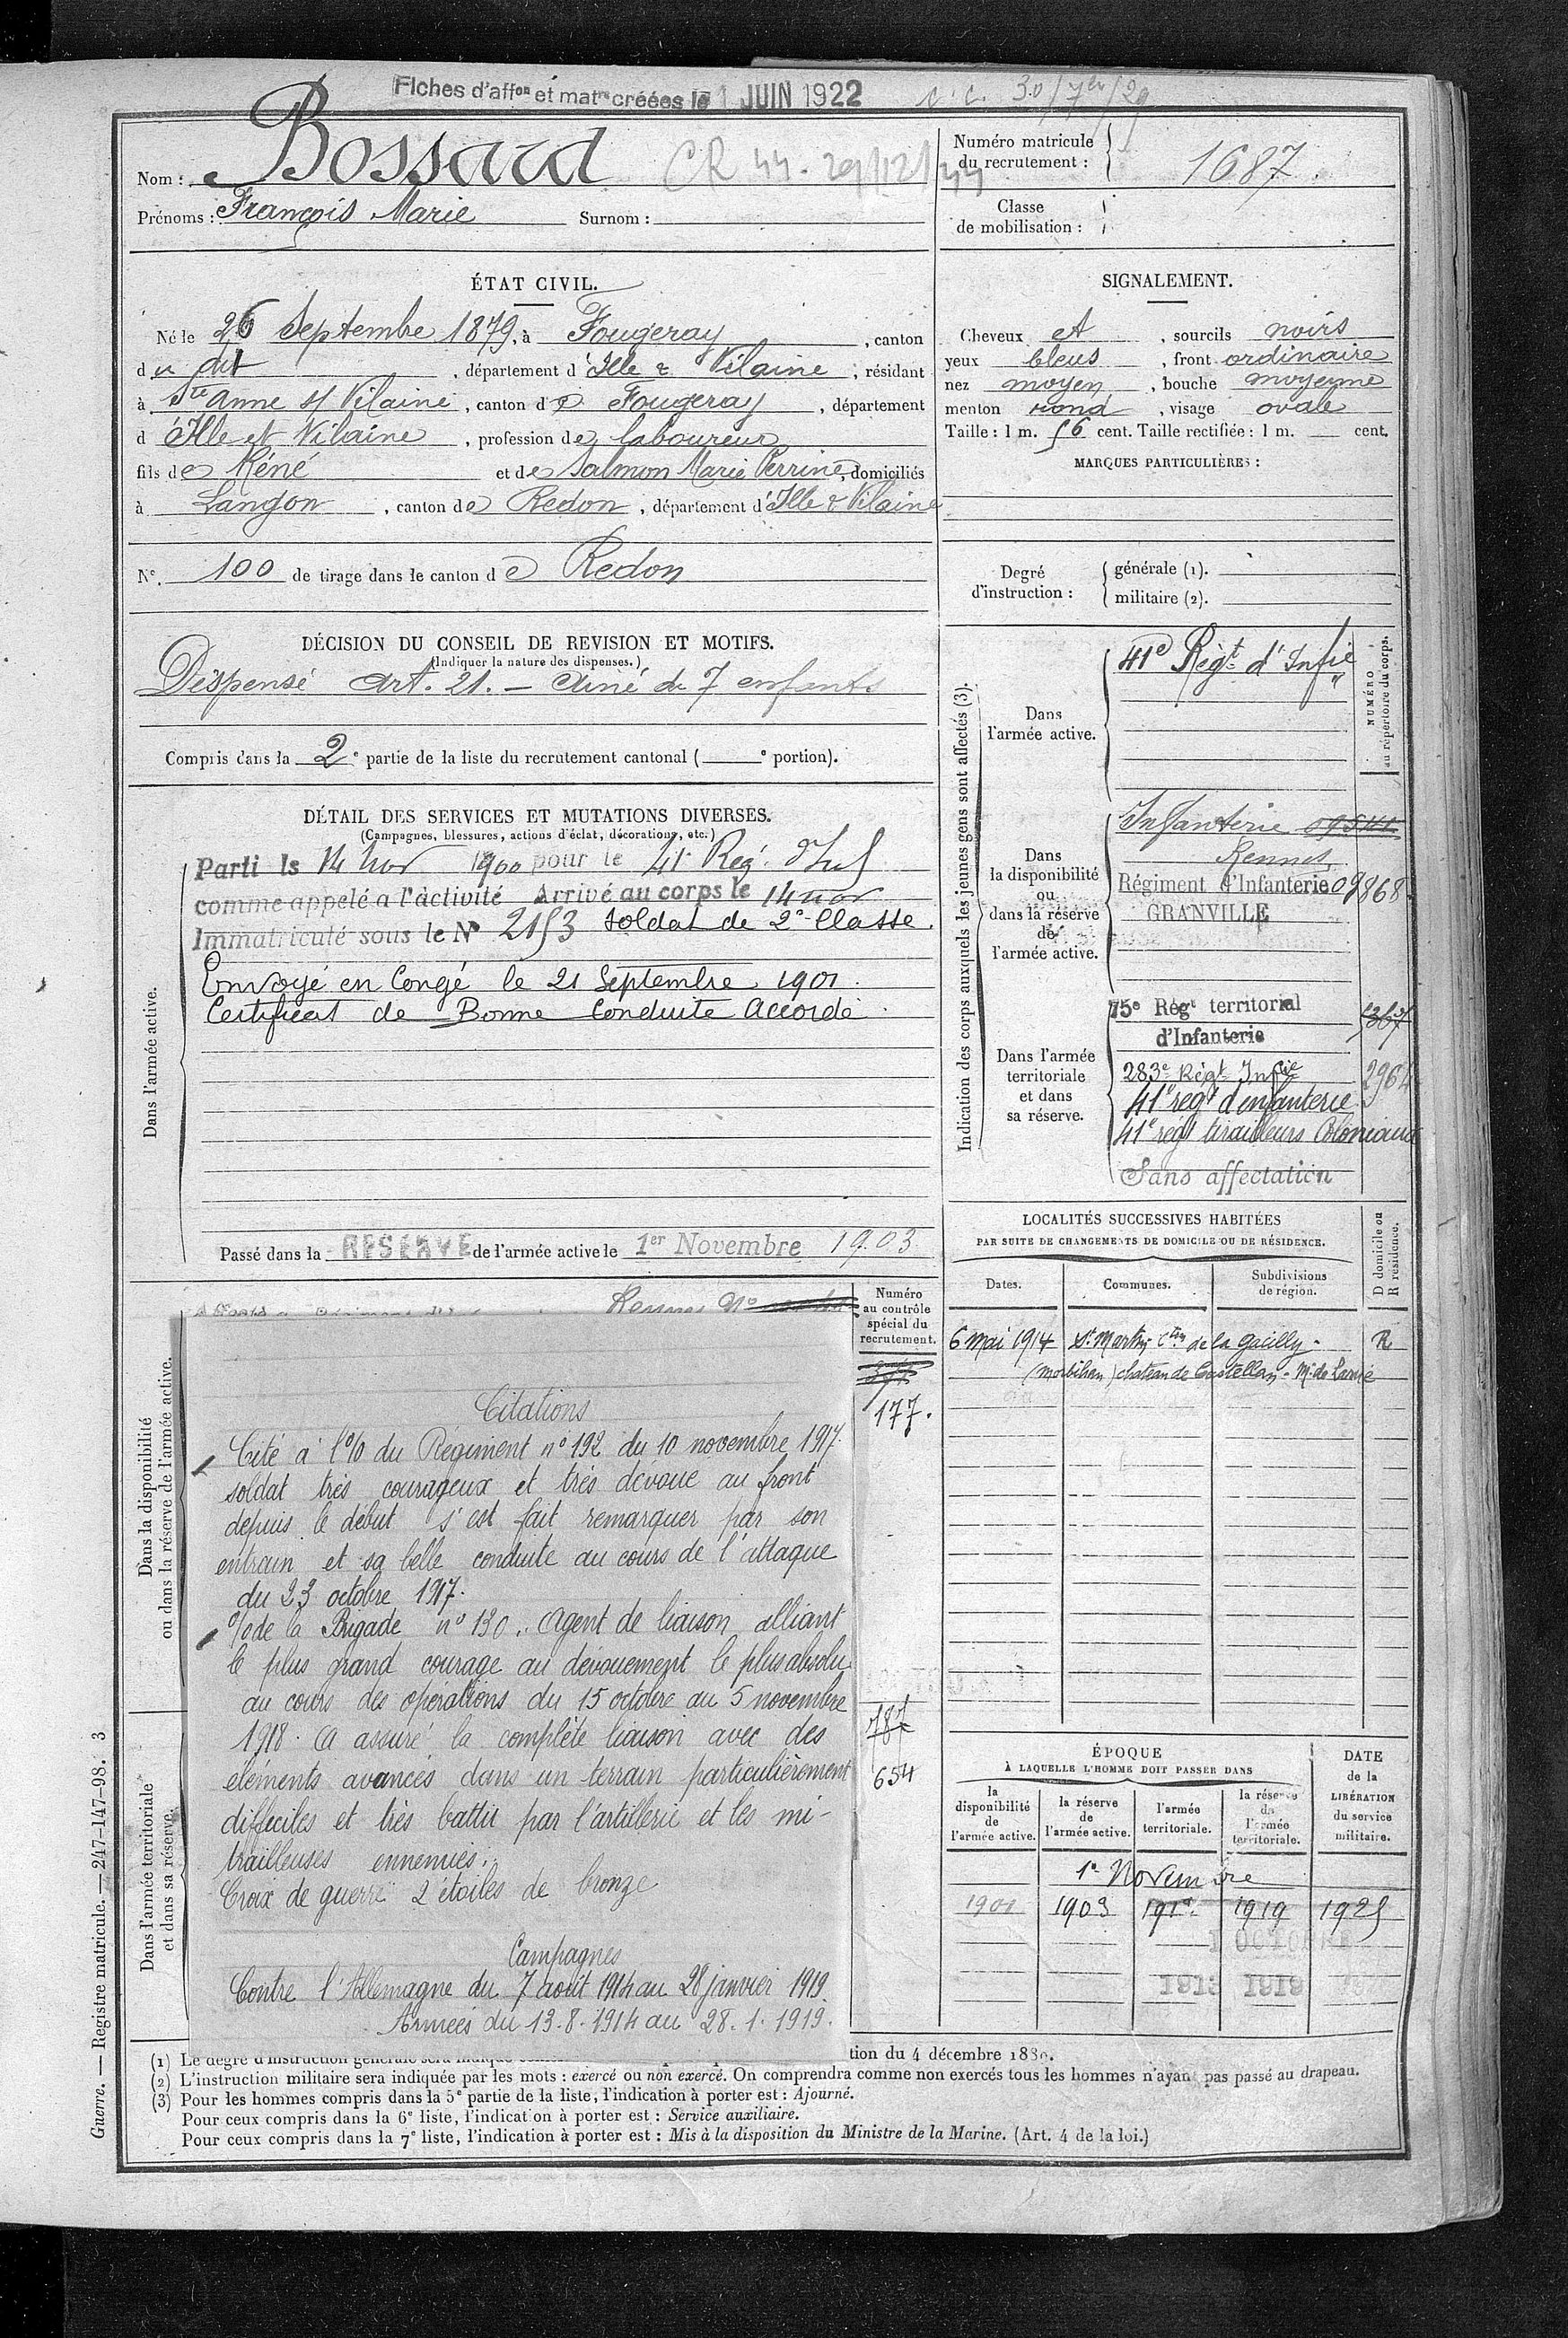 Fiches d'affon et matre créées le 1 JUIN 1922
Nom : Bossard
Prénoms : François Marie Surnom :
Numéro matricule du recrutement : 1687.
Classe de mobilisation :
ÉTAT CIVIL.
Né le 26 Septembre 1879, à Fougeray, canton
du dit, département d'Ille & Vilaine, résidant
à Ste Anne s/ Vilaine, canton de Fougeray, département
d'Ille et Vilaine, profession de laboureur
fils de Réné et de Salmon Marie Perrine, domiciliés
à Langon, canton de Redon, département d'Ille & Vilaine
N° 100 de tirage dans le canton de Redon
SIGNALEMENT.
Cheveux et, sourcils noirs
yeux bleus, front ordinaire
nez moyen, bouche moyenne
menton rond, visage ovale
Taille : 1 m. 56 cent. Taille rectifiée : 1 m. — cent.
MARQUES PARTICULIÈRES :
Degré d'instruction :
générale (1).
militaire (2).
DÉCISION DU CONSEIL DE REVISION ET MOTIFS.
(Indiquer la nature des dispenses.)
Dispensé Art. 21. — Ainé de 7 enfants
Compris dans la 2e partie de la liste du recrutement cantonal ( e portion).
DÉTAIL DES SERVICES ET MUTATIONS DIVERSES.
(Campagnes, blessures, actions d'éclat, décorations, etc.)
Dans l'armée active.
Parti le 14 nov 1900 pour le 41e Rég. d'Inf
comme appelé à l'activité Arrivé au corps le 14 nov
Immatriculé sous le N° 2153 Soldat de 2e Classe.
Envoyé en Congé le 21 Septembre 1901.
Certificat de Bonne Conduite Accordé.
Passé dans la RÉSERVE de l'armée active le 1er Novembre 1903
Indication des corps auxquels les jeunes gens sont affectés (3).
NUMÉRO au répertoire du corps.
Dans l'armée active.
41e Régt d'Infie
Dans la disponibilité ou dans la réserve de l'armée active.
Infanterie
Rennes
Régiment d'Infanterie 09868
GRANVILLE
Dans l'armée territoriale et dans sa réserve.
75e Régt territorial
d'Infanterie
283e Régt Infie 2964
41e régt d'infanterie
41e régt tirailleurs Coloniaux
Sans affectation
LOCALITÉS SUCCESSIVES HABITÉES
PAR SUITE DE CHANGEMENTS DE DOMICILE OU DE RÉSIDENCE.
Dates. Communes. Subdivisions de région. D domicile ou R résidence.
6 mai 1914 St Martin cton de la Gacilly. R
(Morbihan) chateau de Castellan
Dans la disponibilité ou dans la réserve de l'armée active.
Numéro au contrôle spécial du recrutement.
177.
Citations
Cité à l'o/o du Régiment n° 192 du 10 novembre 1917.
soldat très courageux et très dévoué au front
depuis le début s'est fait remarquer par son
entrain et sa belle conduite au cours de l'attaque
du 23 octobre 1917.
o/o de la Brigade n° 130. Agent de liaison alliant
le plus grand courage au dévouement le plus absolu
au cours des opérations du 15 octobre au 5 novembre
1918. A assuré la complète liaison avec des
éléments avancés dans un terrain particulièrement
difficiles et très battu par l'artillerie et les mi-
trailleuses ennemies.
Croix de guerre 2 étoiles de bronze
Campagnes
Contre l'Allemagne du 7 août 1914 au 28 janvier 1919.
Armées du 13.8.1914 au 28.1.1919.
Dans l'armée territoriale et dans sa réserve.
787
654
ÉPOQUE
À LAQUELLE L'HOMME DOIT PASSER DANS
la disponibilité de l'armée active. la réserve de l'armée active. l'armée territoriale. la réserve de l'armée territoriale.
DATE de la LIBÉRATION du service militaire.
1er Novembre
1901 1903 1919 1925
1 OCTOBRE
1913 1919
tion du 4 décembre 1889.
(2) L'instruction militaire sera indiquée par les mots : exercé ou non exercé. On comprendra comme non exercés tous les hommes n'ayant pas passé au drapeau.
(3) Pour les hommes compris dans la 5e partie de la liste, l'indication à porter est : Ajourné.
Pour ceux compris dans la 6e liste, l'indication à porter est : Service auxiliaire.
Pour ceux compris dans la 7e liste, l'indication à porter est : Mis à la disposition du Ministre de la Marine. (Art. 4 de la loi.)
Guerre. — Registre matricule. — 247-147-98. 3